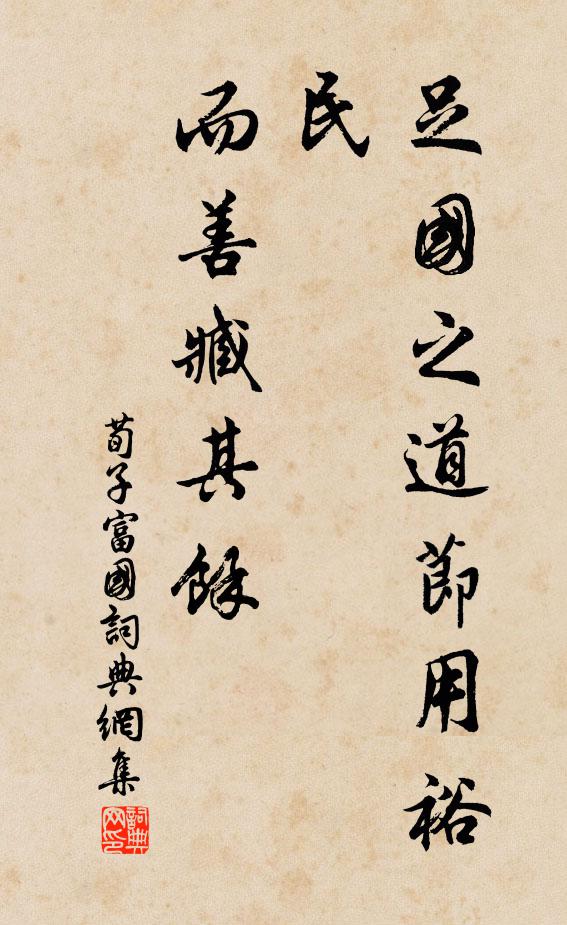 足國之道節用裕
民
而善臧其餘
荀子富國詞典網集
詞典網印